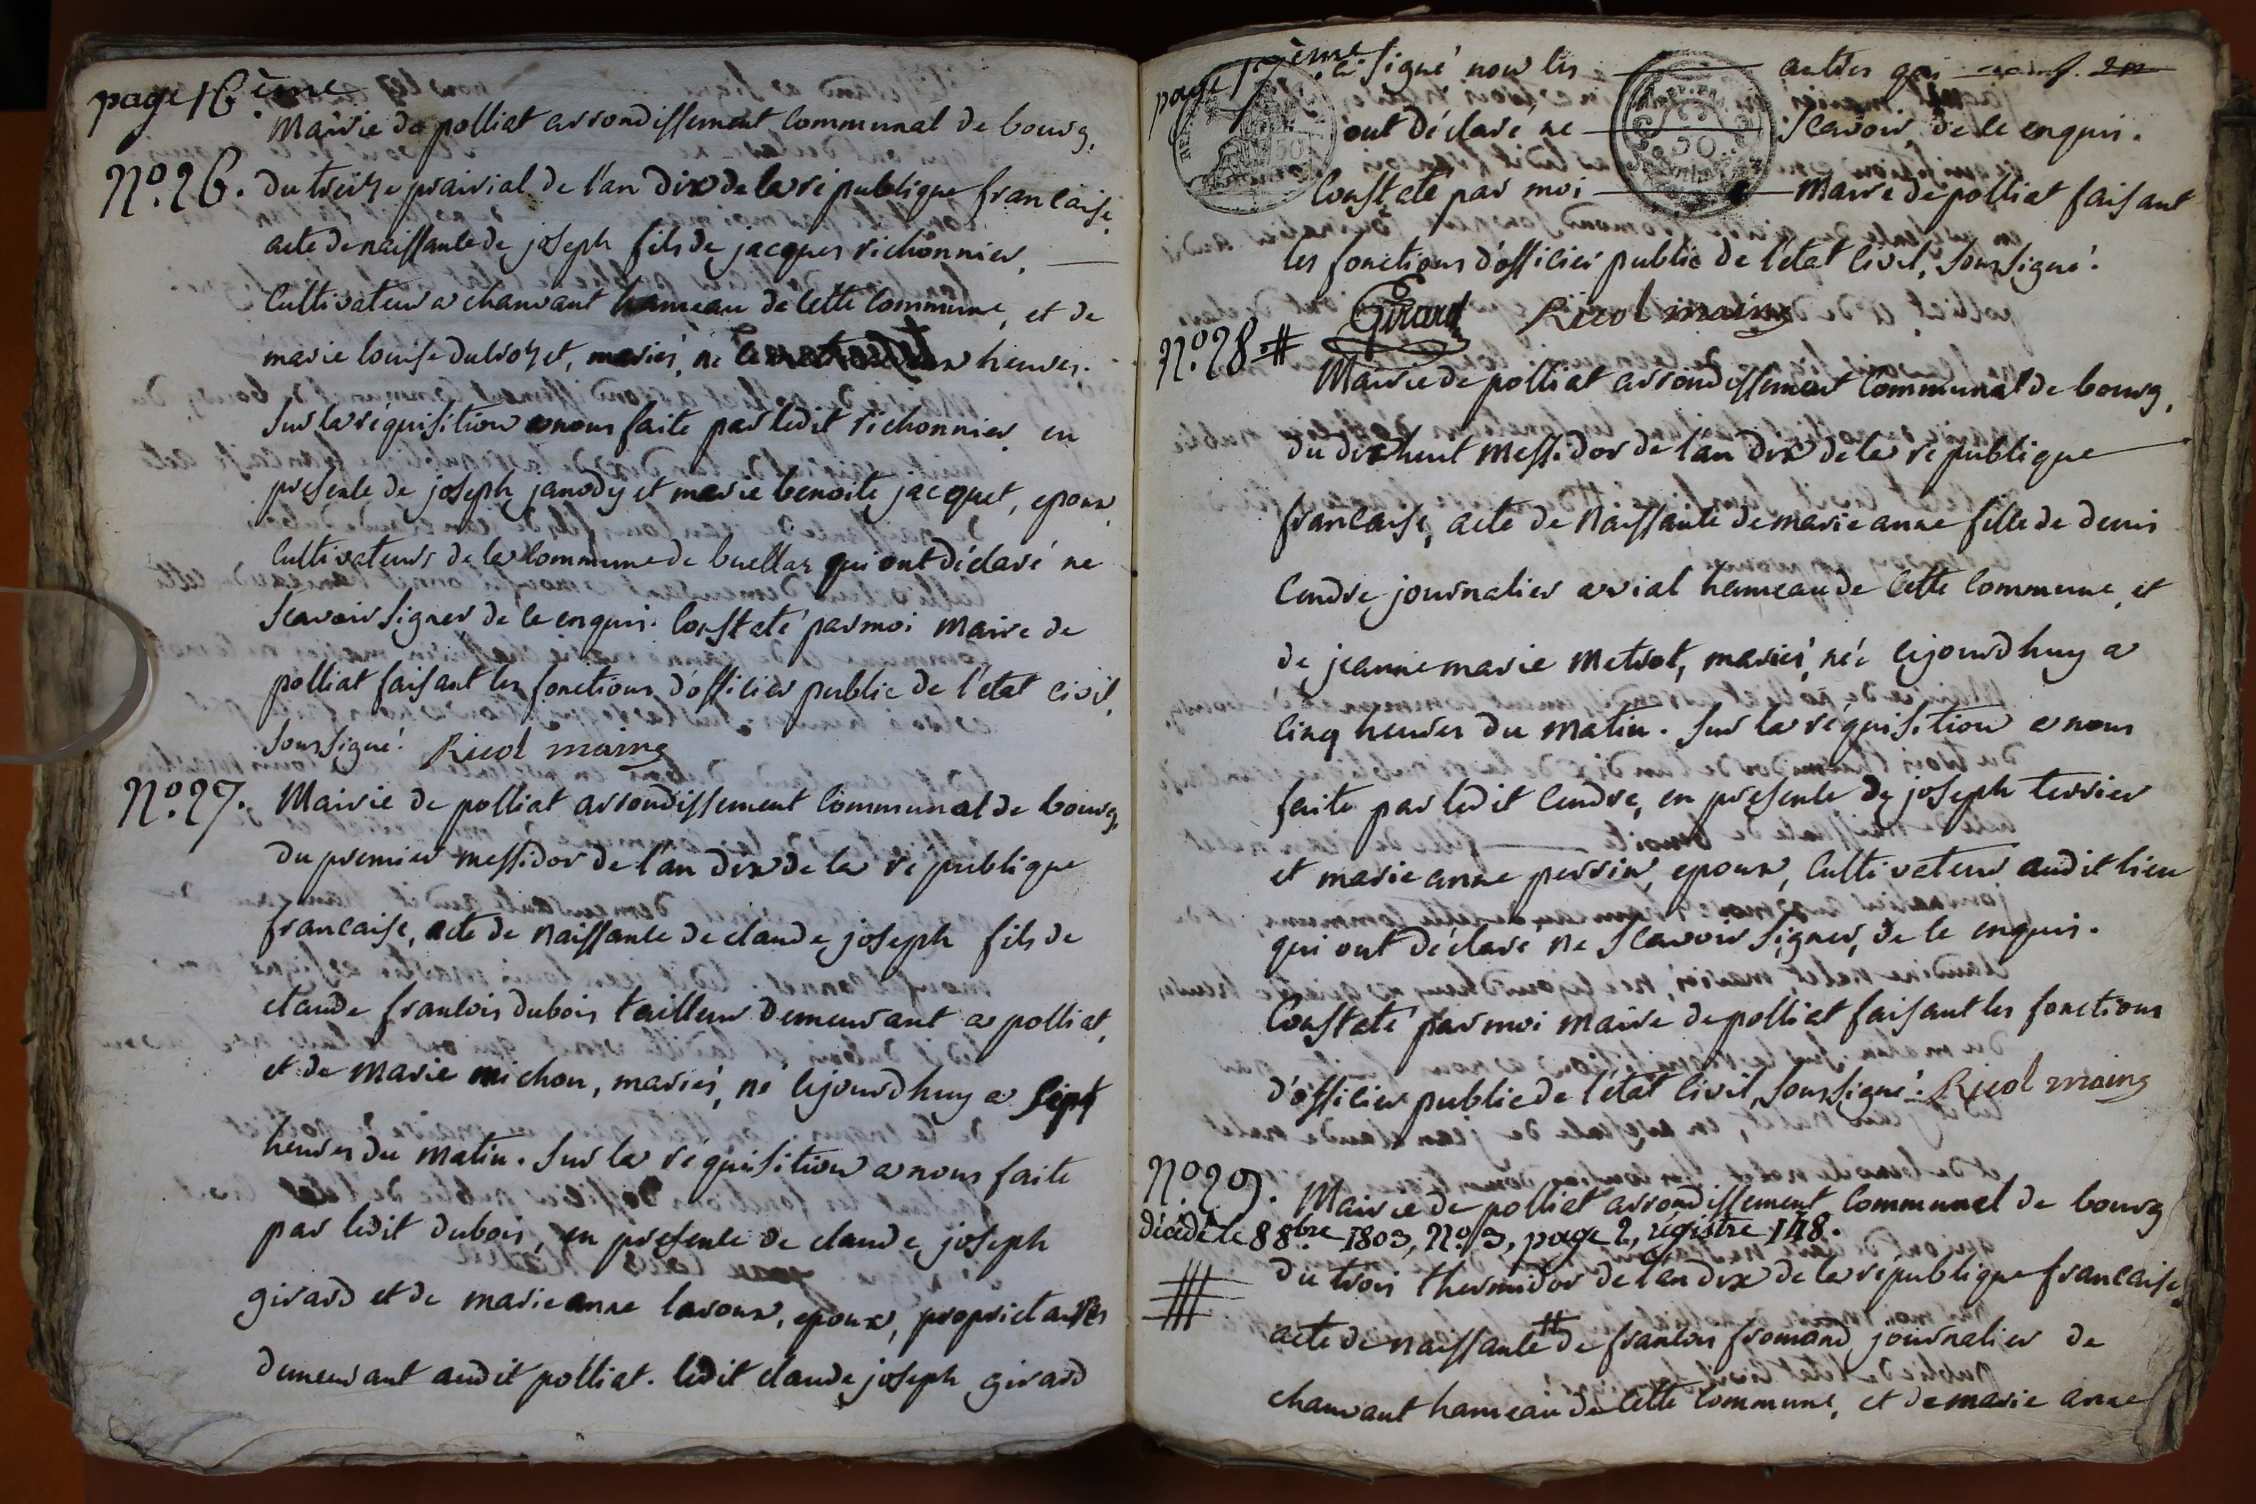 page 16ème
Mairie de polliat arrondissement Communal de bourg,
No. 26. du treize prairial de l'an dix de la république francaise
acte de naissance de joseph fils de jacques richonnier,
Cultivateur a chanvant hameau de cette Commune, et de
marie louise dutrozet, mariés, né heures.
Sur la réquisition a nous faite par ledit richonnier en
presence de joseph janody et marie benoite jacquet, epoux,
Cultivateurs de la Commune de buellas qui ont déclaré ne
Scavoir Signer de ce enquis. Constaté par moi Maire de
polliat faisant les fonctions d'officier public de l'état civil,
Soussigné. Ricol maire
No. 27. Mairie de polliat arrondissement Communal de bourg,
du premier messidor de l'an dix de la république
francaise, acte de Naissance de claude joseph fils de
claude francois dubois tailleur demeurant a polliat,
et de Marie michon, mariés, né cejourdhuy a Sept
heures du Matin. Sur la réquisition a nous faite
par ledit dubois, en presence de claude joseph
girard et de marie anne laroux, epoux, proprietaires
demeurant audit polliat. ledit claude joseph girard
page 17ème
a Signé non les autres qui
ont déclaré ne Scavoir de ce enquis.
50
Constaté par moi Maire de polliat faisant
les fonctions d'officier public de l'état Civil, Soussigné.
Girard Ricol maire
No. 28 #
Mairie de polliat arrondissement Communal de bourg,
du dix huit Messidor de l'an dix de la république
francaise, acte de Naissance de marie anne fille de denis
Cendre journalier a vial hameau de Cette Commune, et
de jeanne marie Metrat, mariés, née cejourdhuy a
Cinq heures du Matin. Sur la réquisition a nous
faite par ledit Cendre, en presence de joseph terrier
et marie anne perrin, epoux, Cultivateur audit lieu
qui ont déclaré ne Scavoir Signer, de ce enquis.
Constaté par moi Maire de polliat faisant les fonctions
d'officier public de l'état Civil, Soussigné. Ricol maire
No. 29. Mairie de polliat arrondissement Communal de bourg
décédé le 8 8bre 1803, No. 3, page 2, registre 148.
du trois thermidor de l'an dix de la république francaise,
acte de naissance # de francois fromand journalier de
chanvant hameau de Cette Commune, et de marie anne